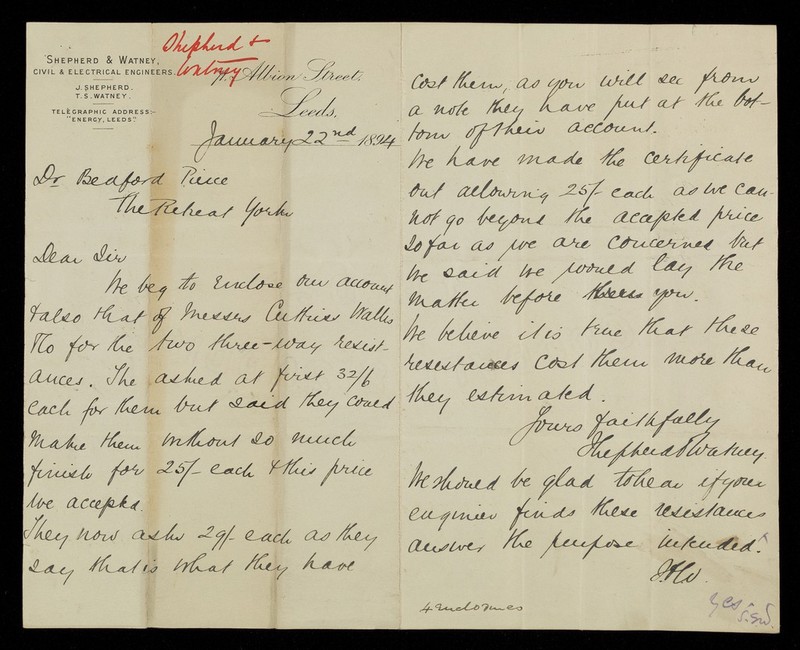 Shepherd &
Watney
SHEPHERD & WATNEY,
CIVIL & ELECTRICAL ENGINEERS.
J. SHEPHERD.
T. S. WATNEY.
TELEGRAPHIC ADDRESS:-
"ENERGY, LEEDS."
Albion Street,
Leeds,
January 22nd 1894
Dr Bedford Pierce
The Retreat York
Dear Sir
We beg to enclose our account
& also that of Messrs Cuttriss Wallis
& Co for the two three-way resist-
ances. The asked at first 32/6
each for them but said they could
make them without so much
finish for 25/- each & this price
we accepted.
They now ask 29/- each as they
say that is what they have
cost them, as you will see from
a note they have put at the bot-
tom of their account.
We have made the certificate
out allowing 25/- each as we can-
not go beyond the accepted price
so far as we are concerned but
we said we would lay the
matter before you.
We believe it is true that these
resestances cost them more than
they estimated.
Yours faithfully
Shepherd & Watney
We should be glad to hear if your
enginier finds these resistances
answer the purpose intended.
S & W.
4 enclosures
yes